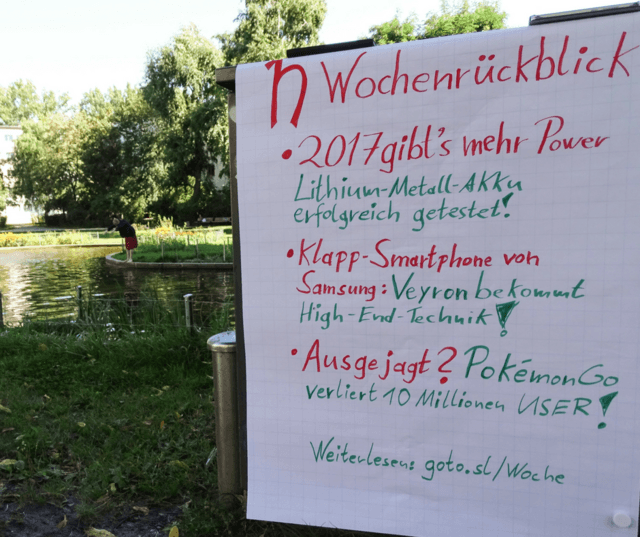 n Wochenrückblick
• 2017 gibt's mehr Power
Lithium-Metall-Akku
erfolgreich getestet!
• Klapp-Smartphone von
Samsung: Veyron bekommt
High-End-Technik!
• Ausgejagt? PokémonGo
verliert 10 Millionen USER!
Weiterlesen: goto.sl/Woche